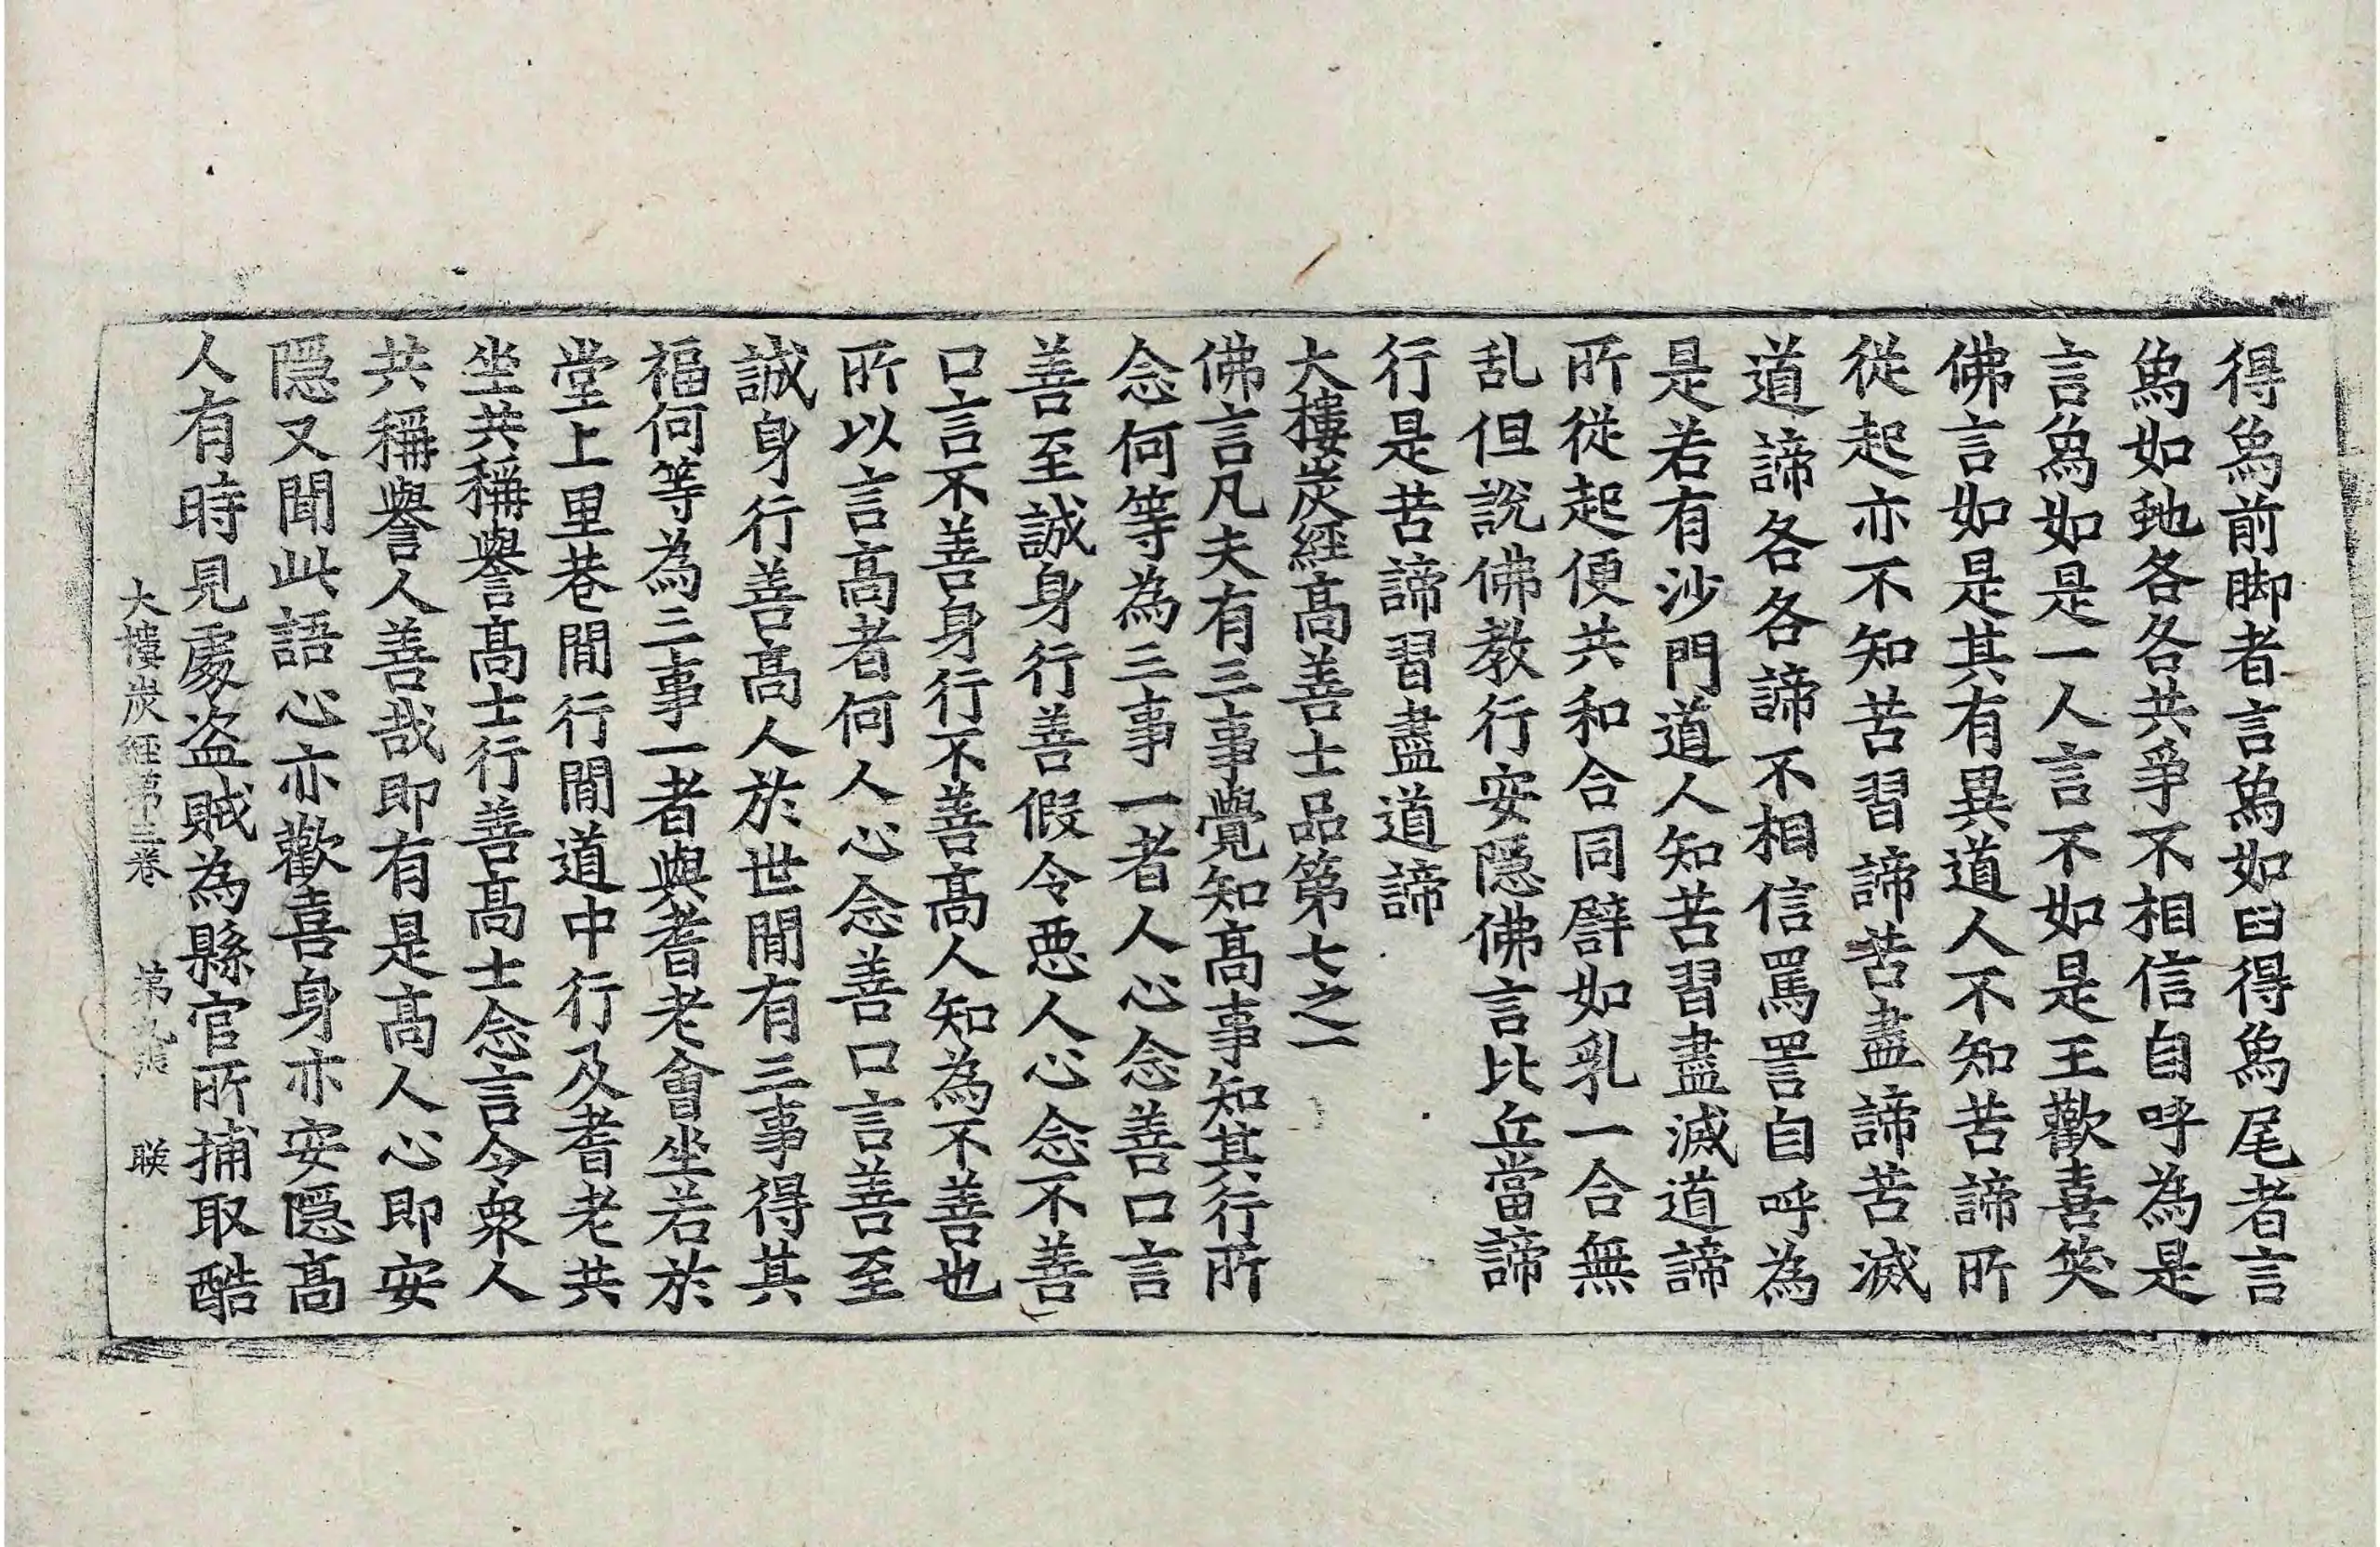 得爲前脚者言爲如臼得爲尾者言
爲如虵各各共爭不相信自呼為是
言爲如是一人言不如是王歡喜笑
佛言如是其有異道人不知苦諦所
從起亦不知苦習諦苦盡諦苦滅
道諦各各諦不相信罵詈自呼為
是若有沙門道人知苦習盡滅道諦
所從起便共和合同譬如乳一合無
乱但說佛教行安隱佛言比丘當諦
行是苦諦習盡道諦
大樓炭經高善士品第七之一
佛言凡夫有三事覺知高事知其行所
念何等為三事一者人心念善口言
善至誠身行善假令惡人心念不善
口言不善身行不善高人知為不善也
所以言高者何人心念善口言善至
誠身行善高人於世閒有三事得其
福何等為三事一者與耆老會坐若於
堂上里巷閒行閒道中行及耆老共
坐共稱譽高士行善高士念言今衆人
共稱譽人善哉即有是高人心即安
隱又聞此語心亦歡喜身亦安隱高
人有時見處盗賊為縣官所捕取酷
大樓炭經第三卷 第九張 聫